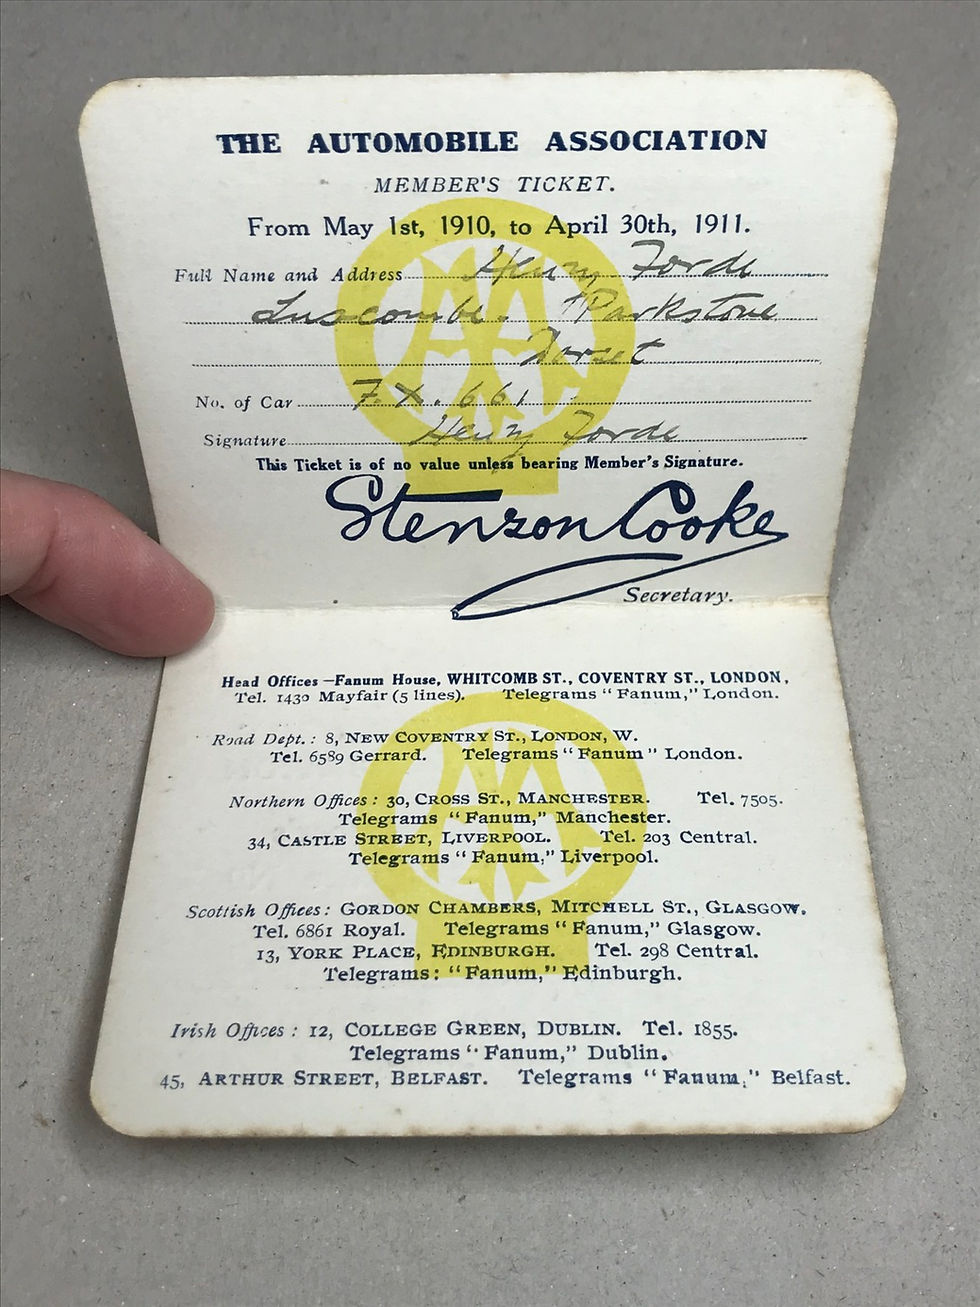 THE AUTOMOBILE ASSOCIATION
MEMBER'S TICKET.
From May 1st, 1910, to April 30th, 1911.
Full Name and Address Henry Forde
Luscombe. Parkstone
Dorset
No. of Car F.X. 661
Signature Henry Forde
This Ticket is of no value unless bearing Member's Signature.
Stenson Cooke
Secretary.
Head Offices—Fanum House, WHITCOMB ST., COVENTRY ST., LONDON,
Tel. 1430 Mayfair (5 lines). Telegrams "Fanum," London.
Road Dept.: 8, NEW COVENTRY ST., LONDON, W.
Tel. 6589 Gerrard. Telegrams "Fanum" London.
Northern Offices: 30, CROSS ST., MANCHESTER. Tel. 7505.
Telegrams "Fanum," Manchester.
34, CASTLE STREET, LIVERPOOL. Tel. 203 Central.
Telegrams "Fanum," Liverpool.
Scottish Offices: GORDON CHAMBERS, MITCHELL ST., GLASGOW.
Tel. 6861 Royal. Telegrams "Fanum," Glasgow.
13, YORK PLACE, EDINBURGH. Tel. 298 Central.
Telegrams: "Fanum," Edinburgh.
Irish Offices: 12, COLLEGE GREEN, DUBLIN. Tel. 1855.
Telegrams "Fanum," Dublin.
45, ARTHUR STREET, BELFAST. Telegrams "Fanum," Belfast.
AA
AA